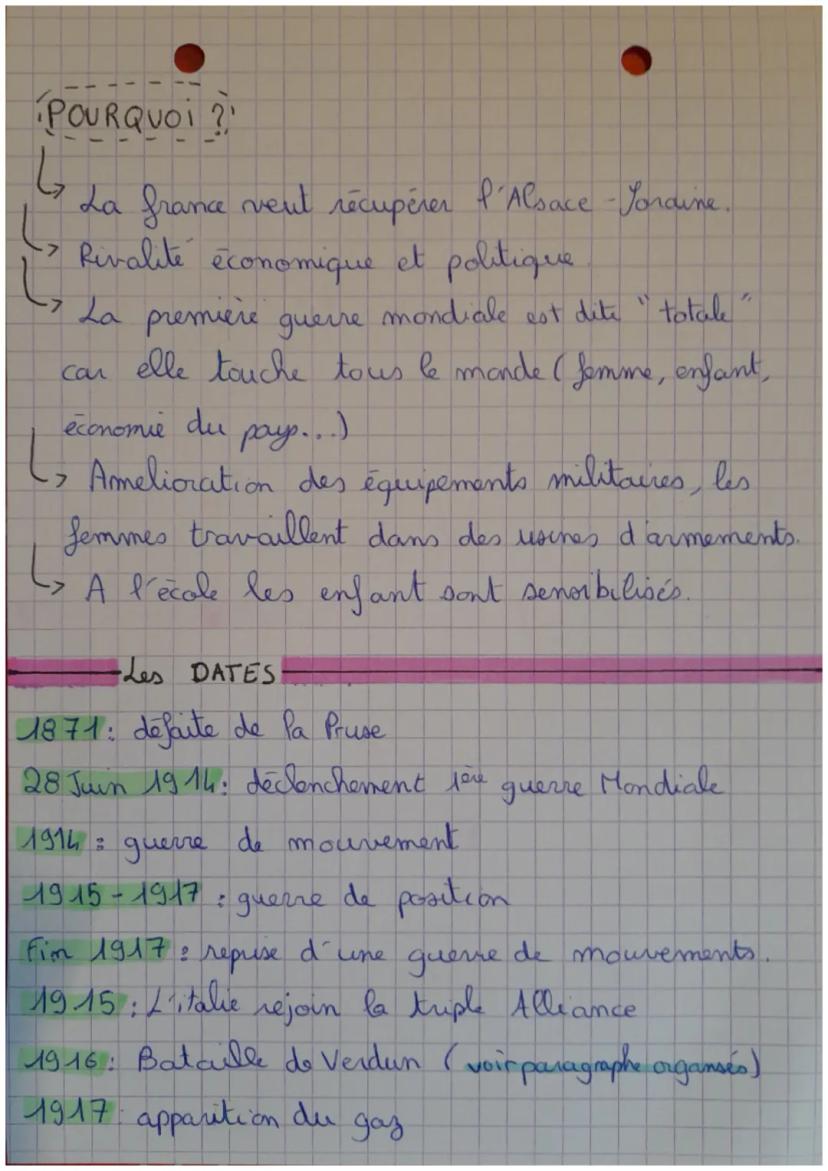 POURQUOI ?
↳ La france veut récupérer l'Alsace-Loraine.
↳ Rivalité économique et politique.
↳ La première guerre mondiale est dite "totale"
car elle touche tous le monde (femme, enfant,
économie du pays...)
↳ Amelioration des équipements militaires, les
femmes travaillent dans des usines d'armements.
↳ A l'école les enfant sont sensibilisés.
Les DATES
1871: défaite de la Pruse
28 Juin 1914: déclenchement 1ère guerre Mondiale
1914: guerre de mouvement
1915-1917: guerre de position
Fin 1917: repuse d'une guerre de mouvements.
1915: L'italie rejoin la triple Alliance
1916: Bataille de Verdun (voir paragraphe organsés)
1917: apparition du gaz